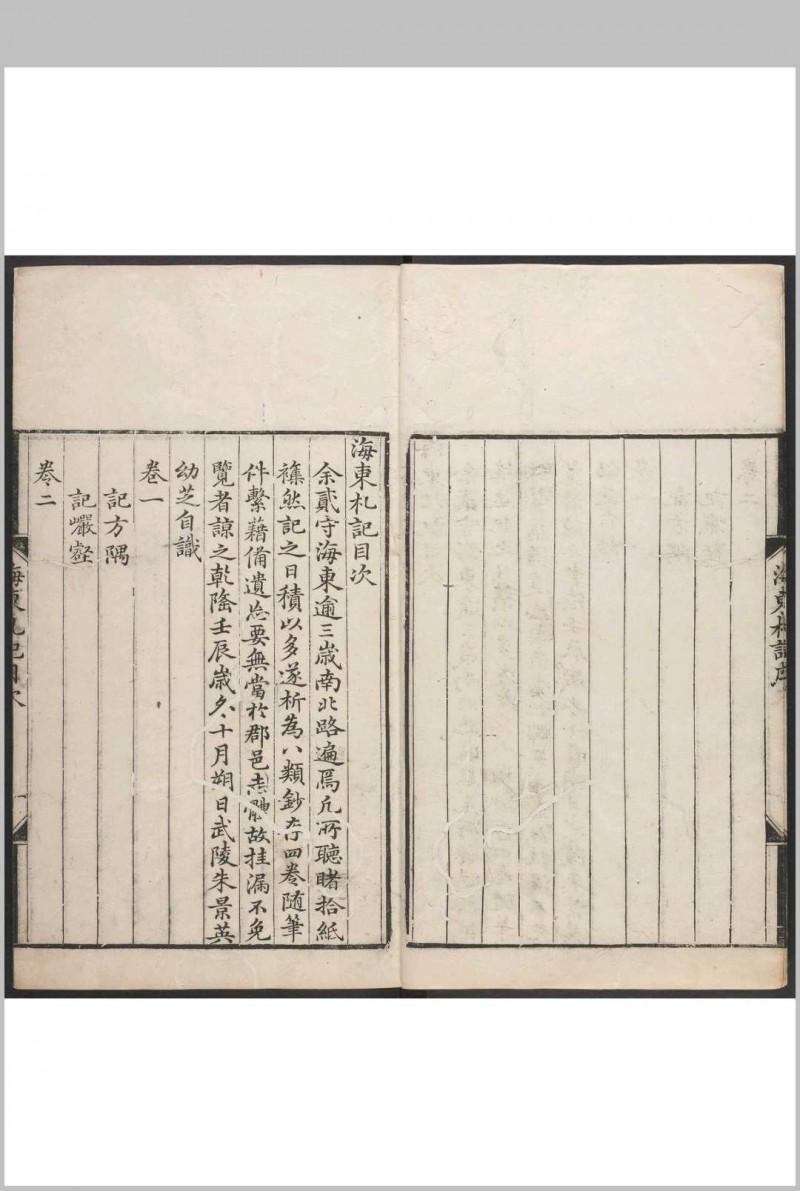 海東札記序
海東札記目次
余貳守海東逾三歲南北路遍焉凡所聽睹拾紙
襍然記之日積以多遂析為八類鈔存四卷隨筆
件繫藉備遺忘要無當於郡邑志體故挂漏不免
覽者諒之乾隆壬辰歲冬十月朔日武陵朱景英
幼芝自識
卷一
記方隅
記巖壑
卷二
海東札記目次
一